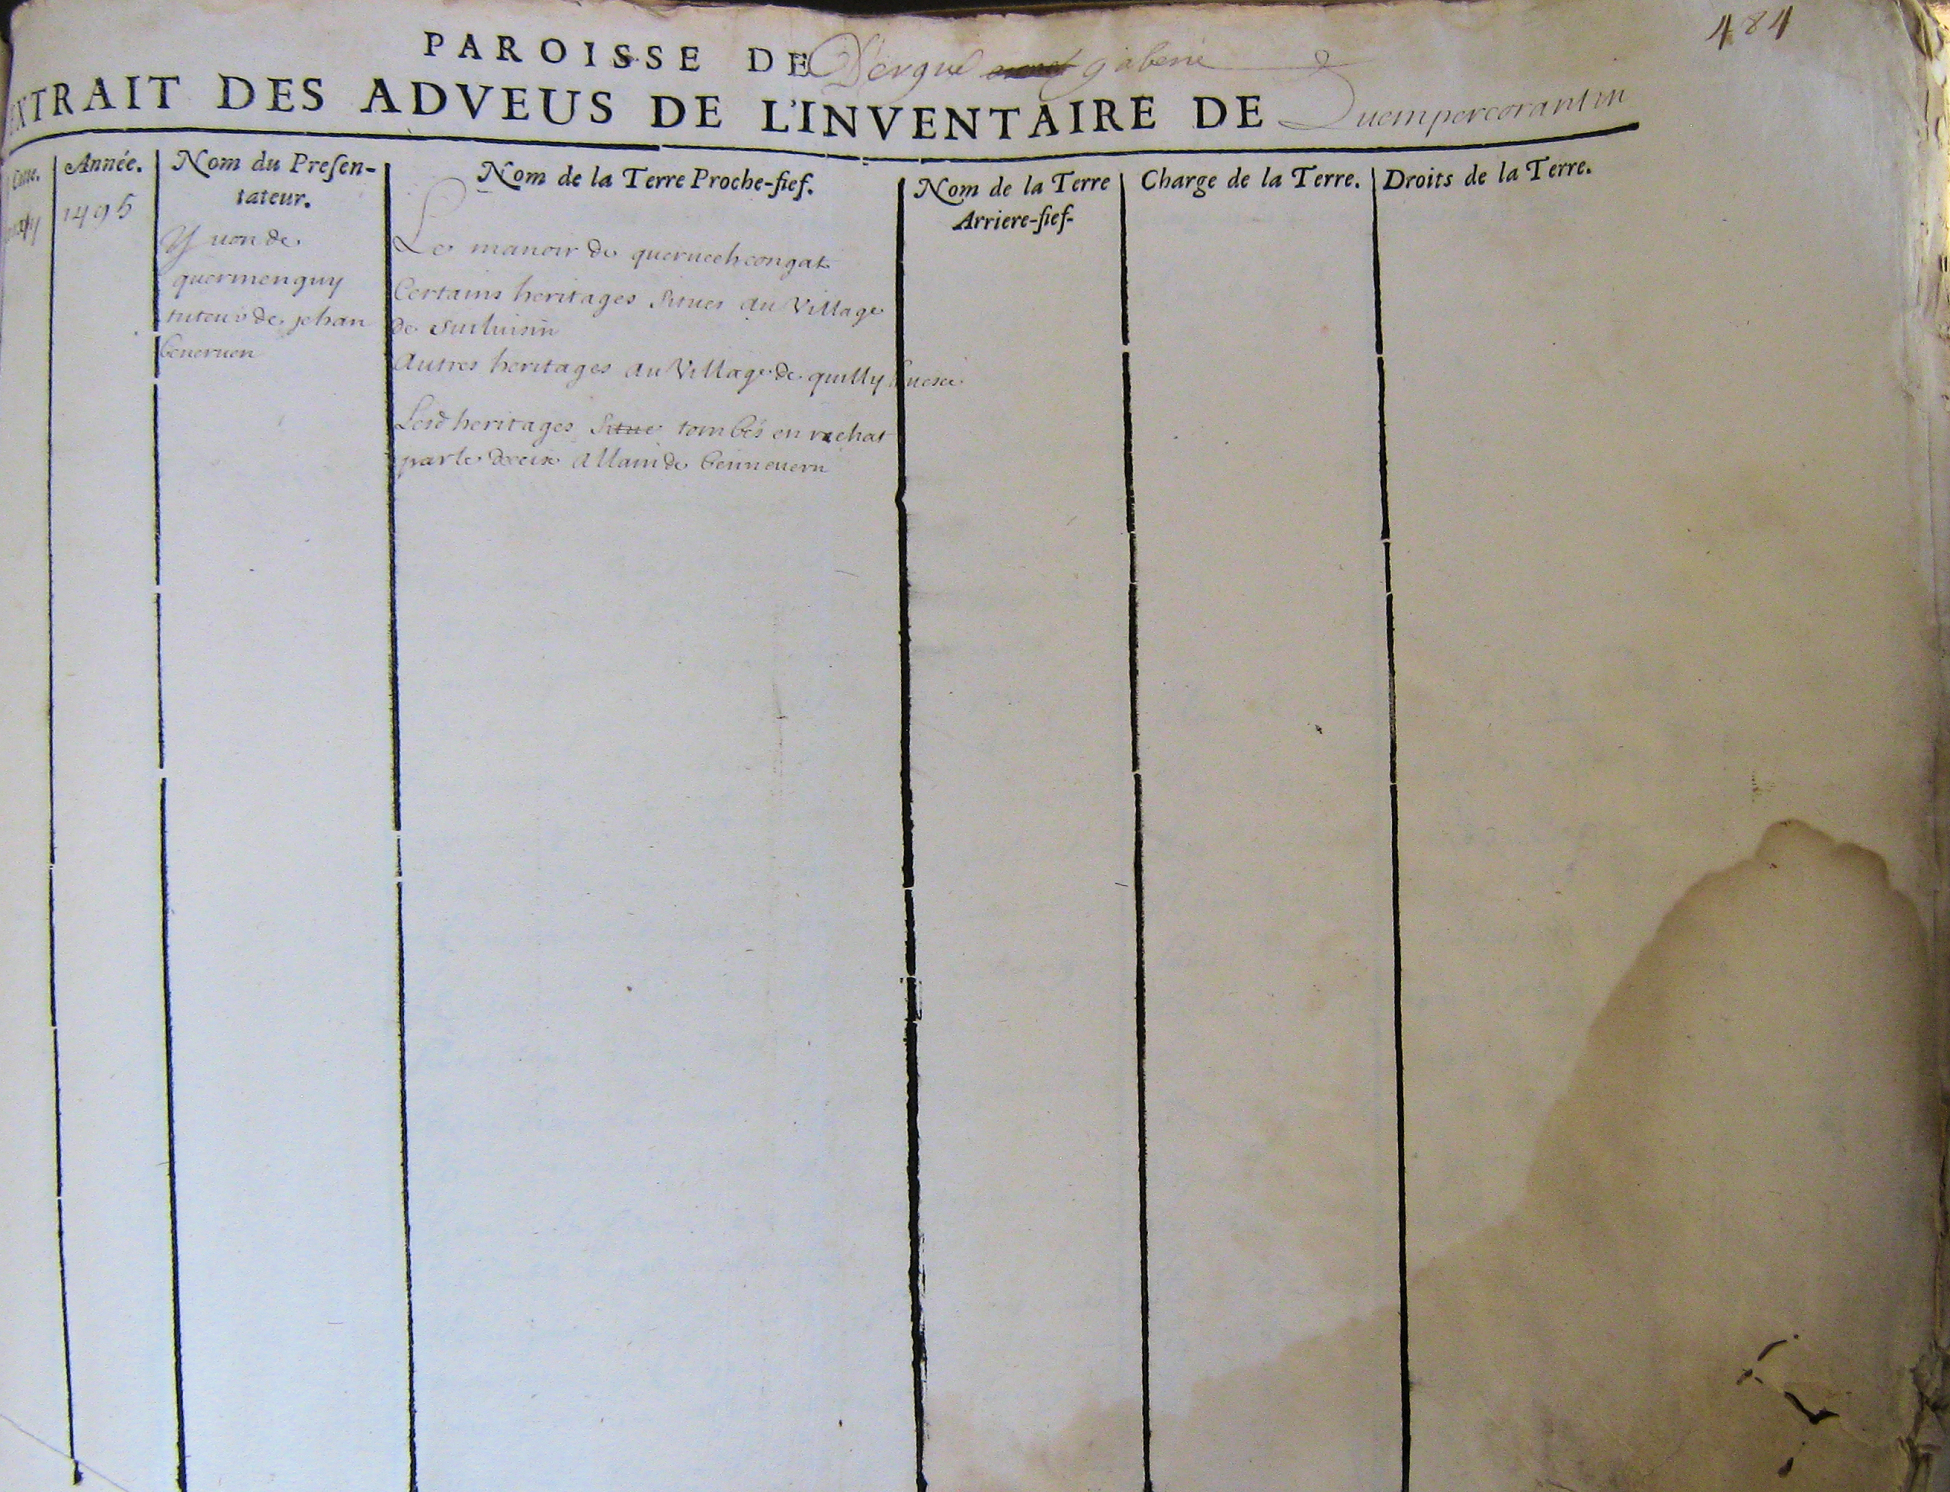 484
PAROISSE DE D'ergue gaberic
EXTRAIT DES ADVEUS DE L'INVENTAIRE DE Quempercorantin
Cotte.
Année.
Nom du Presen-
tateur.
Nom de la Terre Proche-fief.
Nom de la Terre
Arriere-fief.
Charge de la Terre.
Droits de la Terre.
1495
Yuon de
quermenguy
tuteur de jehan
beneruen
Le manoir de querueehcongat
Certains heritages situes au Village
de
Autres heritages au Village de quilly
Lesd heritages situe tombés en rachat
par le deceix Allain de benneuern